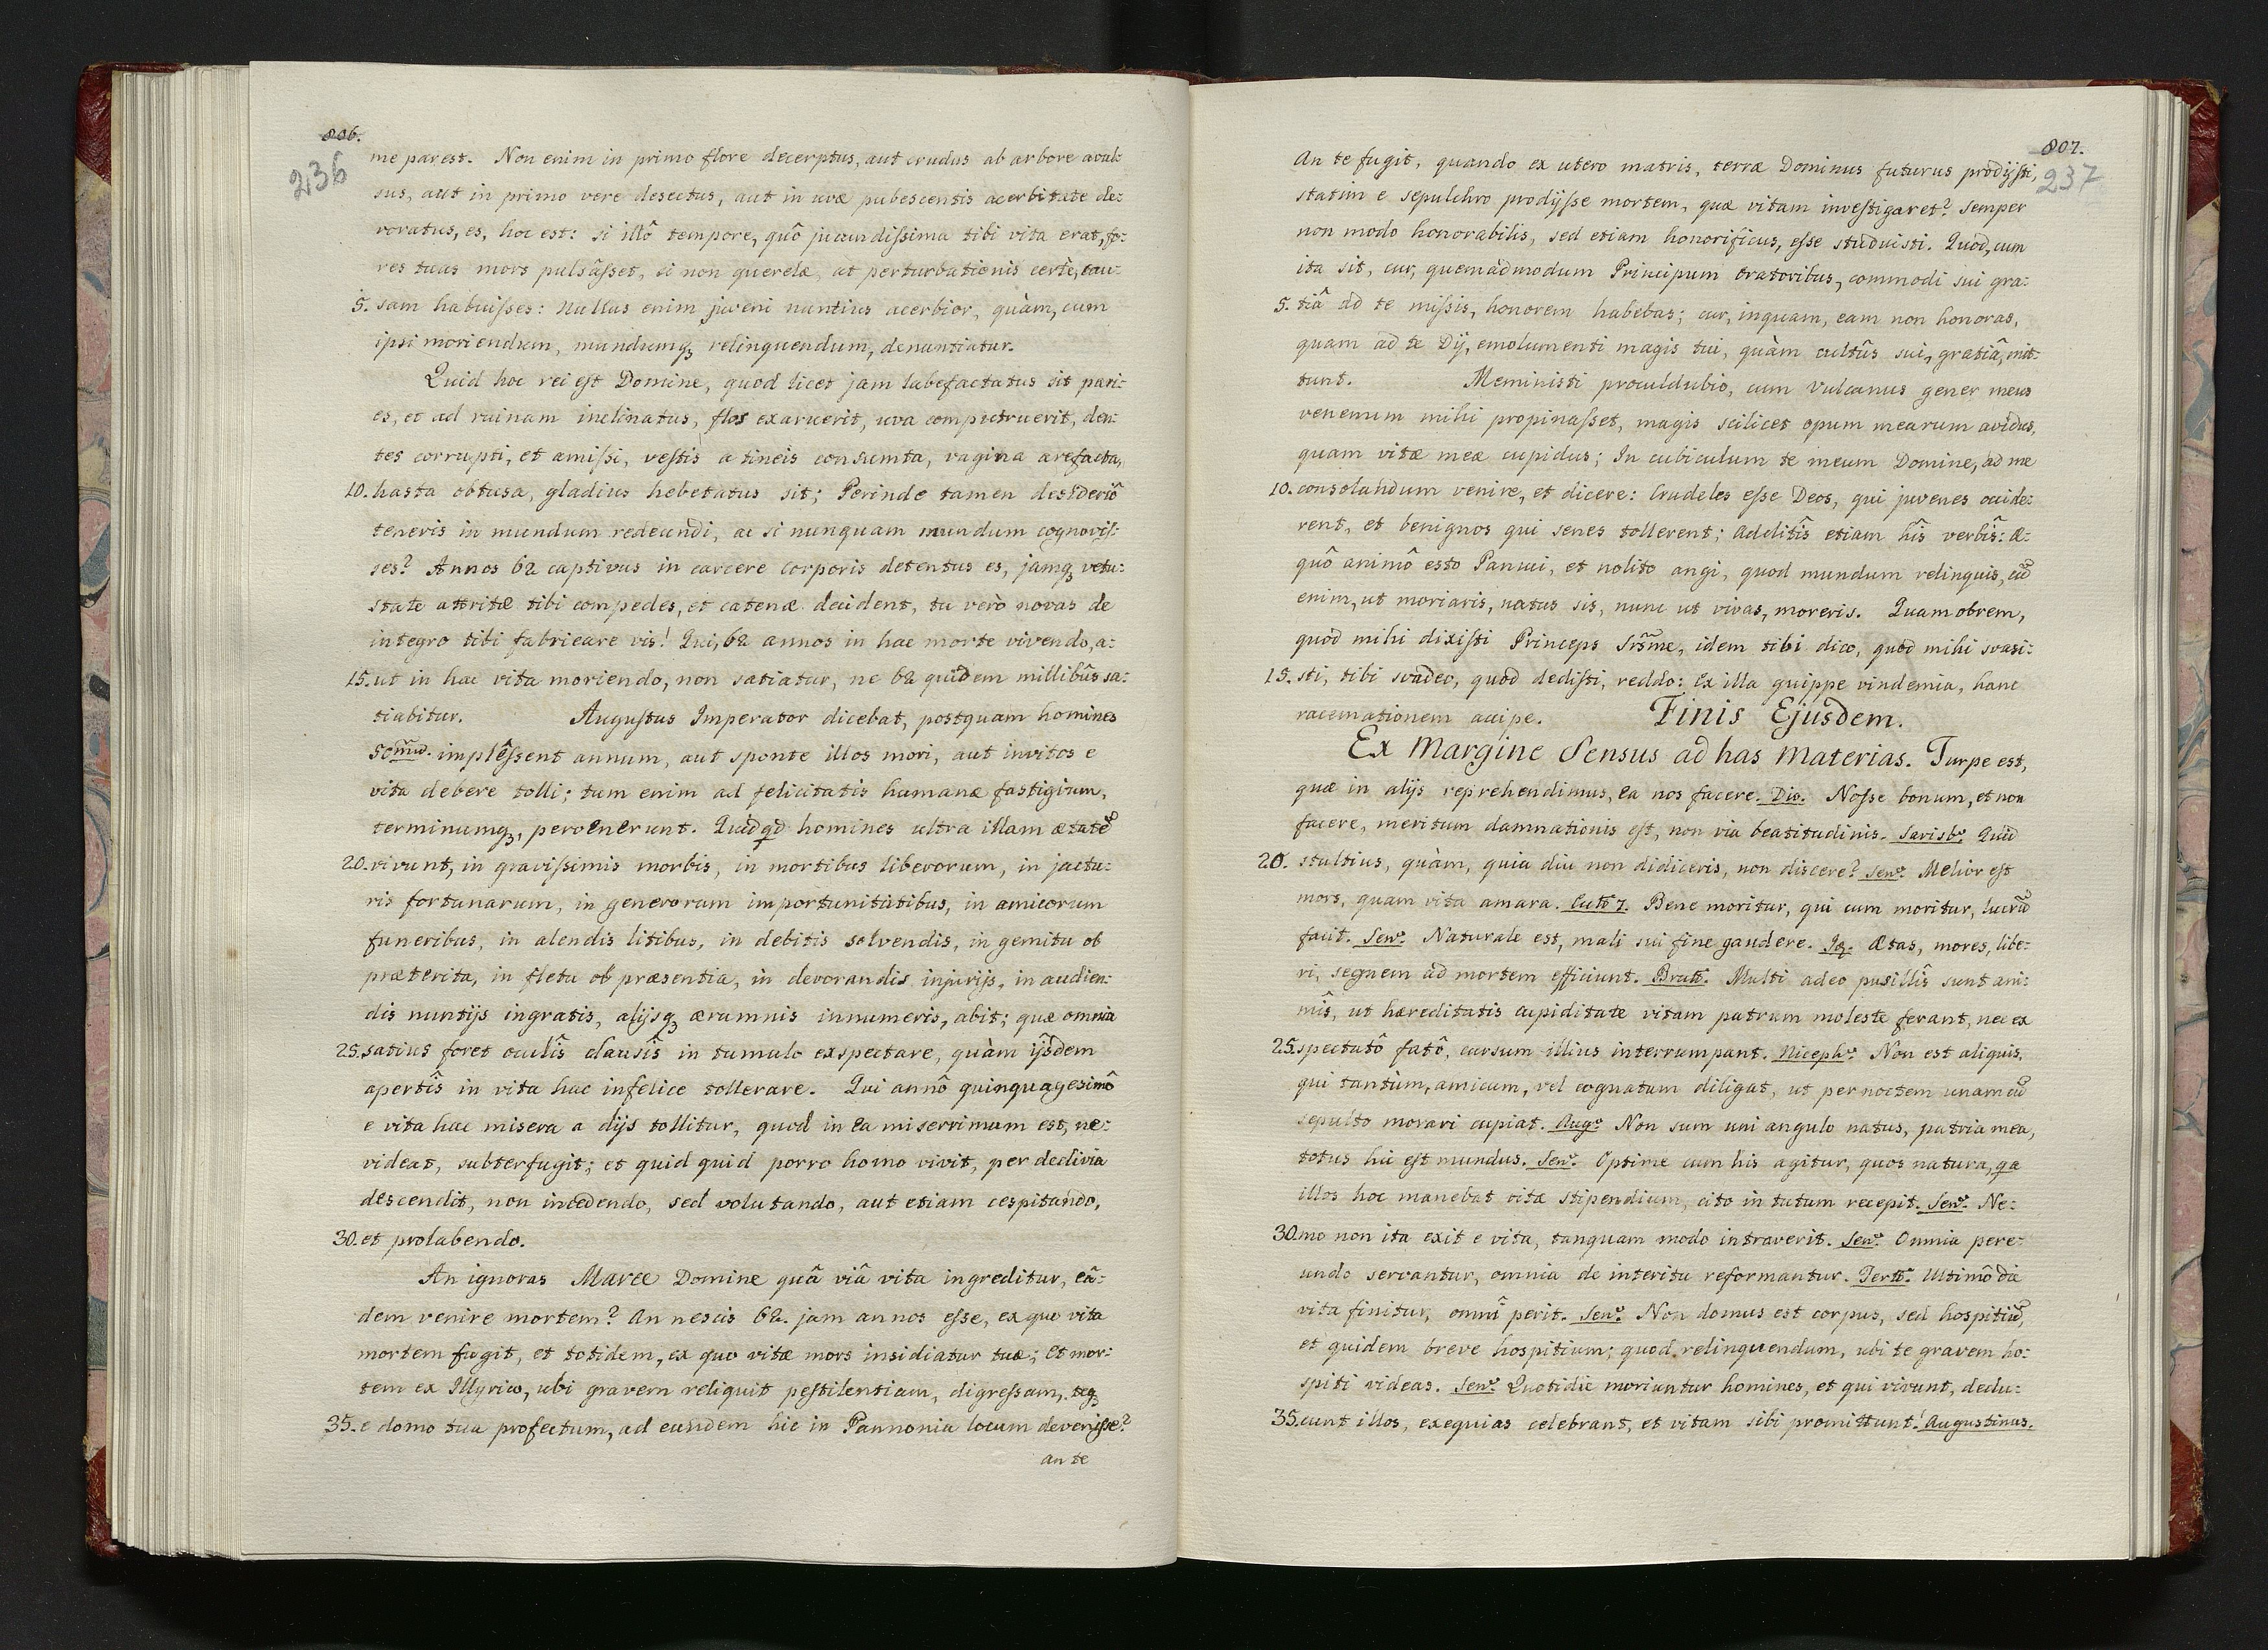 806.
236
me par est. Non enim in primo flore decerptus, aut crudus ab arbore avul:
sus, aut in primo vere desectus, aut in uvæ pubescentis acerbitate de:
voratus, es, hoc est: si illô tempore, quô jucundissima tibi vita erat, fo:
res tuas mors pulsâsset, si non querelæ, at perturbationis certè, cau:
5. sam habuisses: Nullus enim juveni nuntius acerbior, quàm, cum
ipsi moriendum, mundumqꝫ relinquendum, denuntiatur.
Quid hoc rei est Domine, quod licet jam labefactatus sit pari:
es, et ad ruinam inclinatus, flos exaruerit, uva computruerit, den:
tes corrupti, et amissi, vestis a tineis consumta, vagina arefacta,
10. hasta obtusa, gladius hebetatus sit; Perinde tamen desideriô
teneris in mundum redeundi, ac si nunquam mundum cognovis:
ses? Annos 62 captivus in carcere corporis detentus es, jamqꝫ vetu:
state attritæ tibi compedes, et catenæ decident, tu verò novas de
integro tibi fabricare vis! Qui, 62 annos in hac morte vivendo, a:
15. ut in hac vita moriendo, non satiatur, ne 62 quidem millibûs sa:
tiabitur. Augustus Imperator dicebat, postquam homines
50mũ. implêssent annum, aut sponte illos mori, aut invitos e
vita debere tolli; tum enim ad felicitatis humanæ fastigium,
terminumqꝫ, pervenerunt. Quidqd homines ultra illam ætatẽ
20. vivunt, in gravissimis morbis, in mortibus liberorum, in jactu:
ris fortunarum, in generorum importunitatibus, in amicorum
funeribus, in alendis litibus, in debitis solvendis, in gemitu ob
præterita, in fletu ob præsentia, in devorandis injurijs, in audien:
dis nuntijs ingratis, alijsqꝫ ærumnis innumeris, abit; quæ omnia
25. satius foret oculîs clausîs in tumulo exspectare, quàm ijsdem
apertîs in vita hac infelice tollerare. Qui annô quinquagesimô
e vita hac misera a dijs tollitur, quod in ea miserrimum est, ne:
videat, subterfugit; et quid quid porro homo vivit, per declivia
descendit, non incedendo, sed volutando, aut etiam cespitando,
30. et prolabendo.
An ignoras Marce Domine quâ viâ vita ingreditur, eâ:
dem venire mortem? An nescis 62. jam annos esse, ex quo vita
mortem fugit, et totidem, ex quo vitæ mors insidiatur tuæ; Et mor:
tem ex Illyrico, ubi gravem reliquit pestilentiam, digressam, teqꝫ
35. e domo tua profectum, ad eundem hic in Pannonia locum devenisse?
an te
807.
237
An te fugit, quando ex utero matris, terræ Dominus futurus prodijsti,
statim e sepulchro prodijsse mortem, quæ vitam investigaret? Semper
non modo honorabilis, sed etiam honorificus, esse studuisti. Quod, cum
ita sit, cur, quemadmodum Principum Oratoribus, commodi sui gra:
5. tiâ ad te missis, honorem habebas; cur, inquam, eam non honoras,
quam ad te Dij, emolumenti magis tui, quàm cultûs sui, gratiâ, mit:
tunt. Meministi proculdubio, cum Vulcanus gener meus
venenum mihi propinasset, magis scilicet opum mearum avidus,
quam vitæ meæ cupidus; In cubiculum te meum Domine, ad me
10. consolandum venire, et dicere: Crudeles esse Deos, qui juvenes occide:
rent, et benignos qui senes tollerent; Additîs etiam hîs verbîs: Æ:
quô animô esto Pannui, et nolito angi, quod mundum relinquis, cũ
enim, ut moriaris, natus sis, nunc ut vivas, moreris. Quamobrem,
quod mihi dixisti Princeps Srm̃e, idem tibi dico, quod mihi svasi:
15. sti, tibi svadeo, quod dedisti, reddo: Ex illa quippe vindemia, hanc
racemationem accipe. Finis Ejusdem.
Ex Margine Sensus ad has Materias. Turpe est,
quæ in alijs reprehendimus, Ea nos facere. Div. Nosse bonum, et non
facere, meritum damnationis est, non via beatitudinis. Sarisb. Quid
20. stultius, quàm, quia diu non didiceris, non discere? Sen. Melior est
mors, quam vita amara. Eccli 7. Bene moritur, qui cum moritur, lucrũ
facit. Sen. Naturale est, mali sui fine gaudere. Iq. Ætas, mores, libe:
ri, segnem ad mortem efficiunt. Brutt. Multi adeo pusillîs sunt ani:
mîs, ut hæreditatis cupiditate vitam patrum moleste ferant, nec ex
25. spectatô fatô, cursum illius interrumpant. Niceph. Non est aliquis,
qui tantùm, amicum, vel cognatum diligat, ut per noctem unam cũ
sepulto morari cupiat. Aug. Non sum uni angulo natus, patria mea,
totus hic est mundus. Sen. Optime cum his agitur, quos natura, qa
illos hoc manebat vitæ stipendium, cito in tutum recepit. Sen. Ne:
30. mo non ita exit e vita, tanquam modo intraverit. Sen. Omnia pere:
undo servantur, omnia de interitu reformantur. Tertt. Ultimô die
vita finitur, omnî perit. Sen. Non domus est corpus, sed hospitiũ,
et quidem breve hospitium; quod relinquendum, ubi te gravem ho:
spiti videas. Sen. Quotidie moriuntur homines, et qui vivunt, dedu:
35. cunt illos, exequias celebrant, et vitam sibi promittunt! Augustinus.